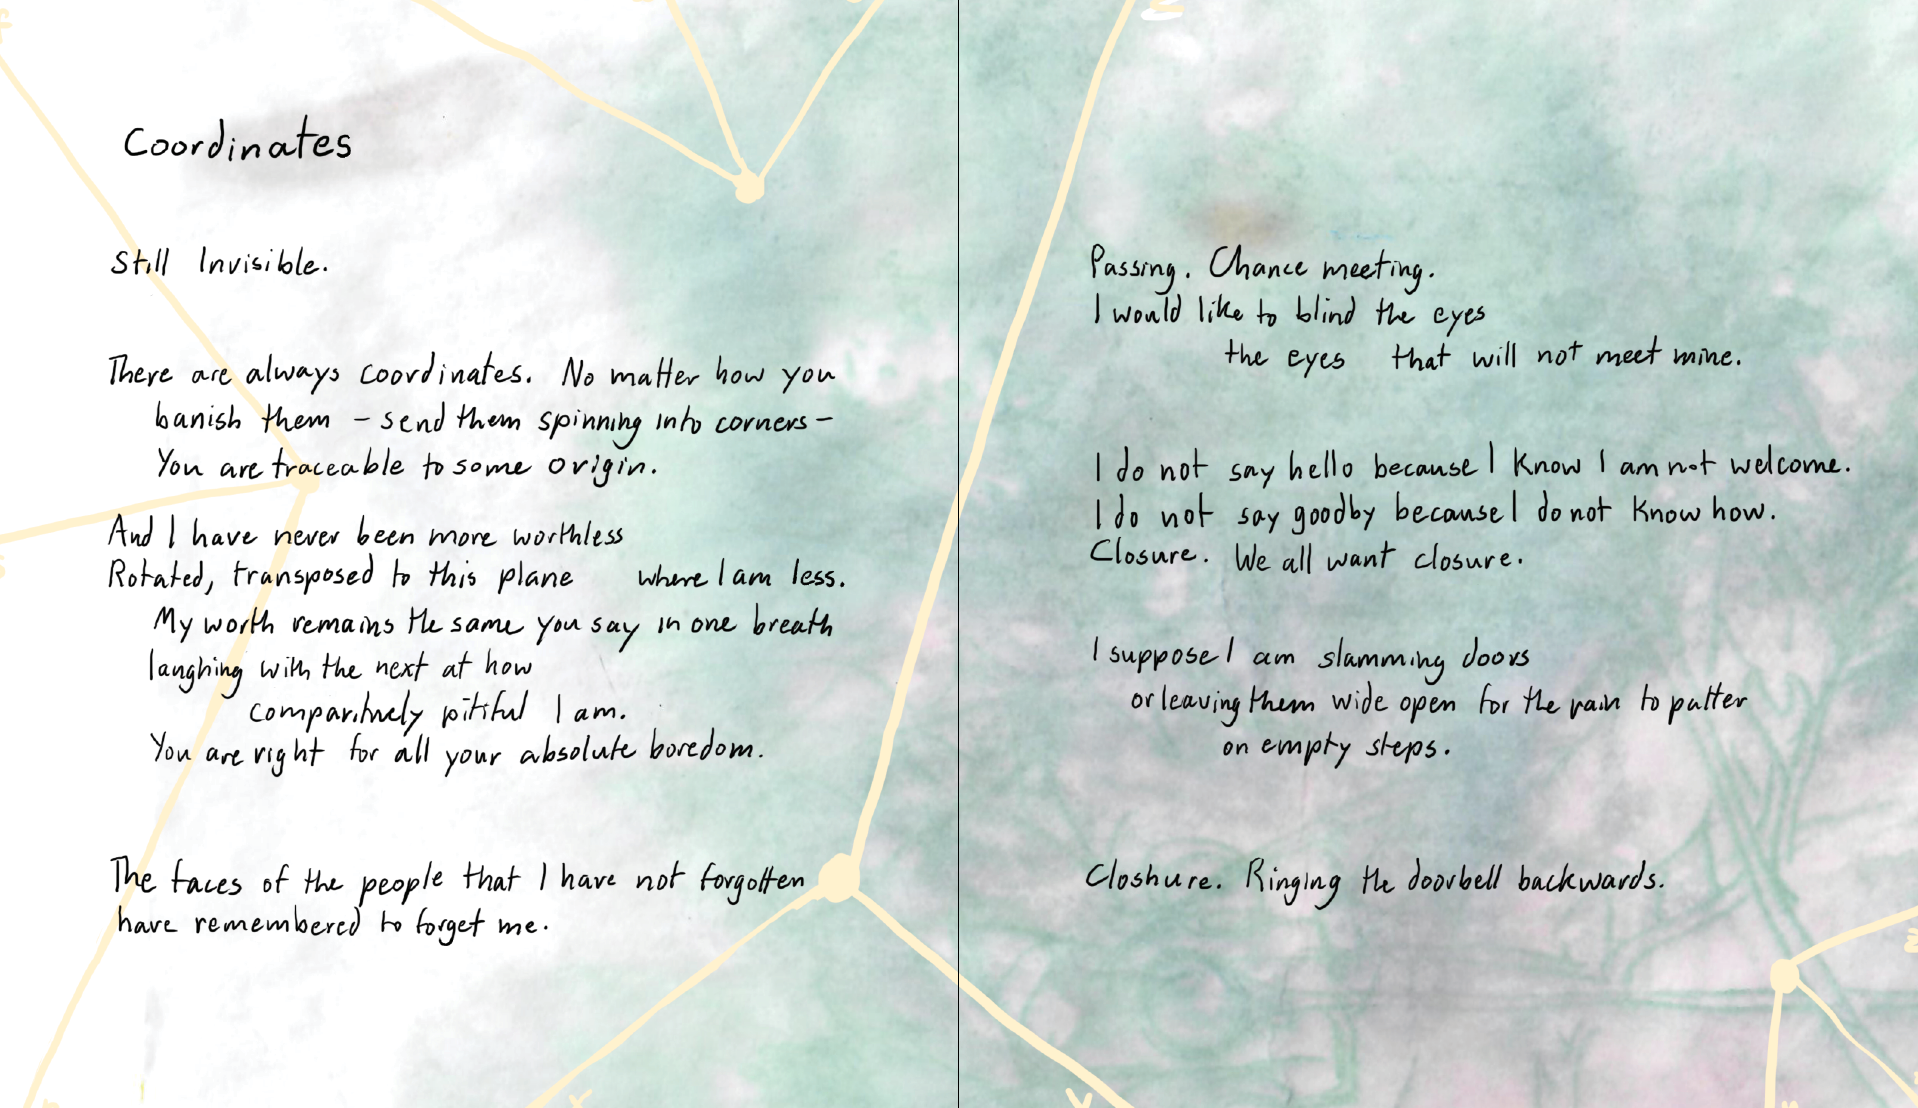 Coordinates
Still Invisible.
There are always coordinates. No matter how you
banish them - send them spinning into corners -
You are traceable to some origin.
And I have never been more worthless
Rotated, transposed to this plane where I am less.
My worth remains the same you say in one breath
laughing with the next at how
comparitively pitiful I am.
You are right for all your absolute boredom.
The faces of the people that I have not forgotten
have remembered to forget me.
Passing. Chance meeting.
I would like to blind the eyes
the eyes that will not meet mine.
I do not say hello because I know I am not welcome.
I do not say goodby because I do not know how.
Closure. We all want closure.
I suppose I am slamming doors
or leaving them wide open for the rain to patter
on empty steps.
Closhure. Ringing the doorbell backwards.